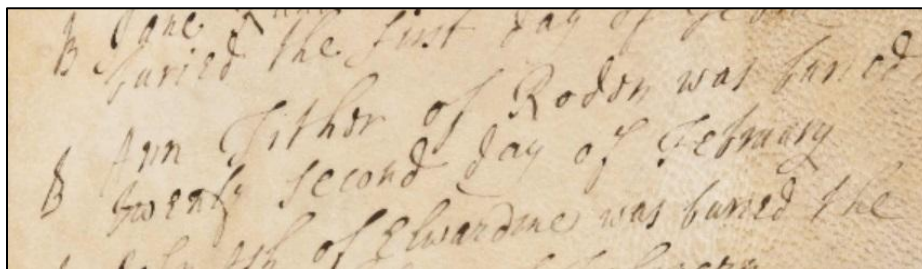 B Jane
buried the first day of
Ann Tither of Roden was buried
B twenty second day of February
of Elwardine was buried the